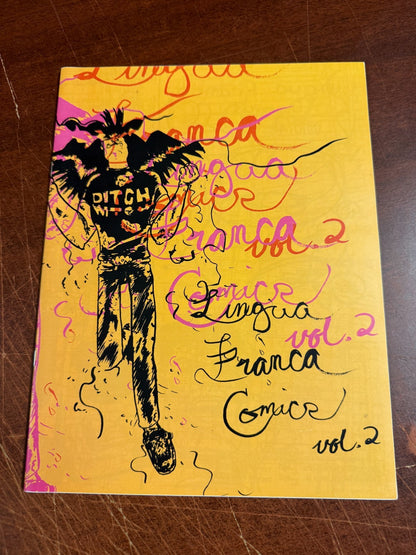 Lingua
Franca
Lingua
Comics
Franca
vol. 2
Comics
DITCH
WITCH
Lingua
vol. 2
Franca
Comics
vol. 2